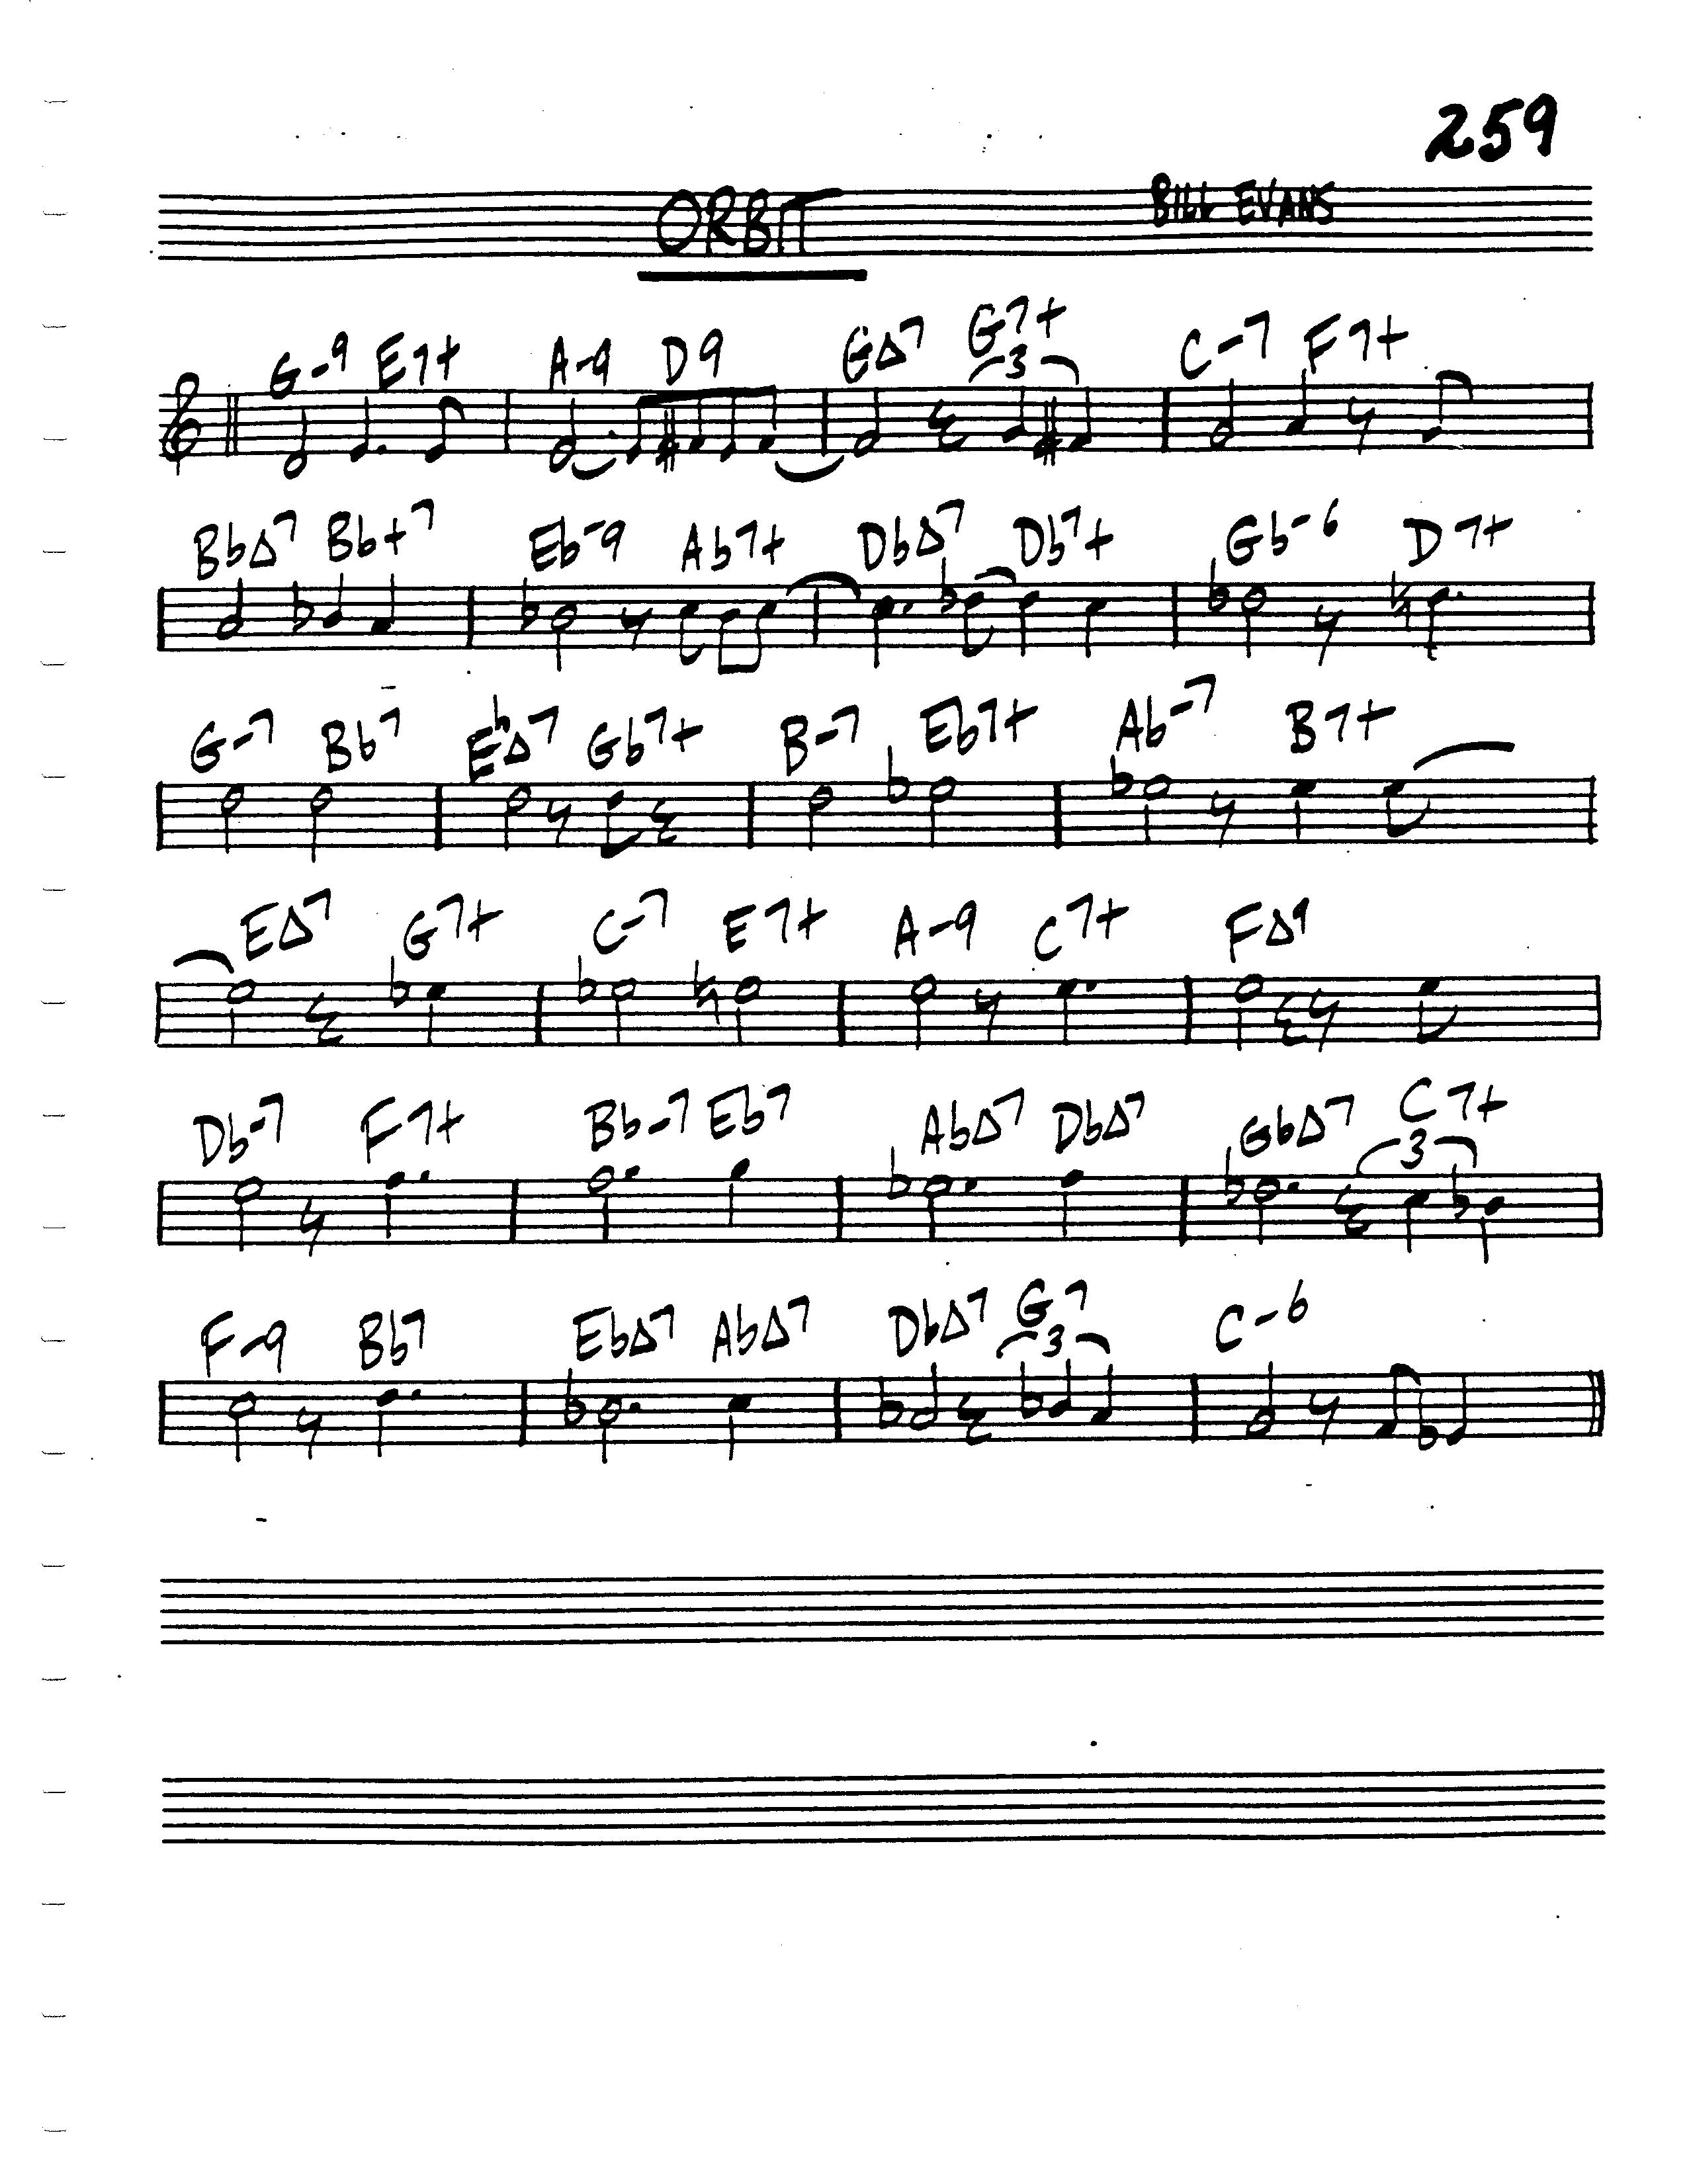 259
ORBIT BILL EVANS
G-9 E7+ A-9 D9 GΔ7 G7+ C-7 F7+
3
BbΔ7 Bb+7 Eb-9 Ab7+ DbΔ7 Db7+ Gb-6 D7+
G-7 Bb7 EbΔ7 Gb7+ B-7 Eb7+ Ab-7 B7+
EΔ7 G7+ C-7 E7+ A-9 C7+ FΔ9
Db-7 F7+ Bb-7 Eb7 AbΔ7 DbΔ7 GbΔ7 C7+
3
F-9 Bb7 EbΔ7 AbΔ7 DbΔ7 G7 C-6
3